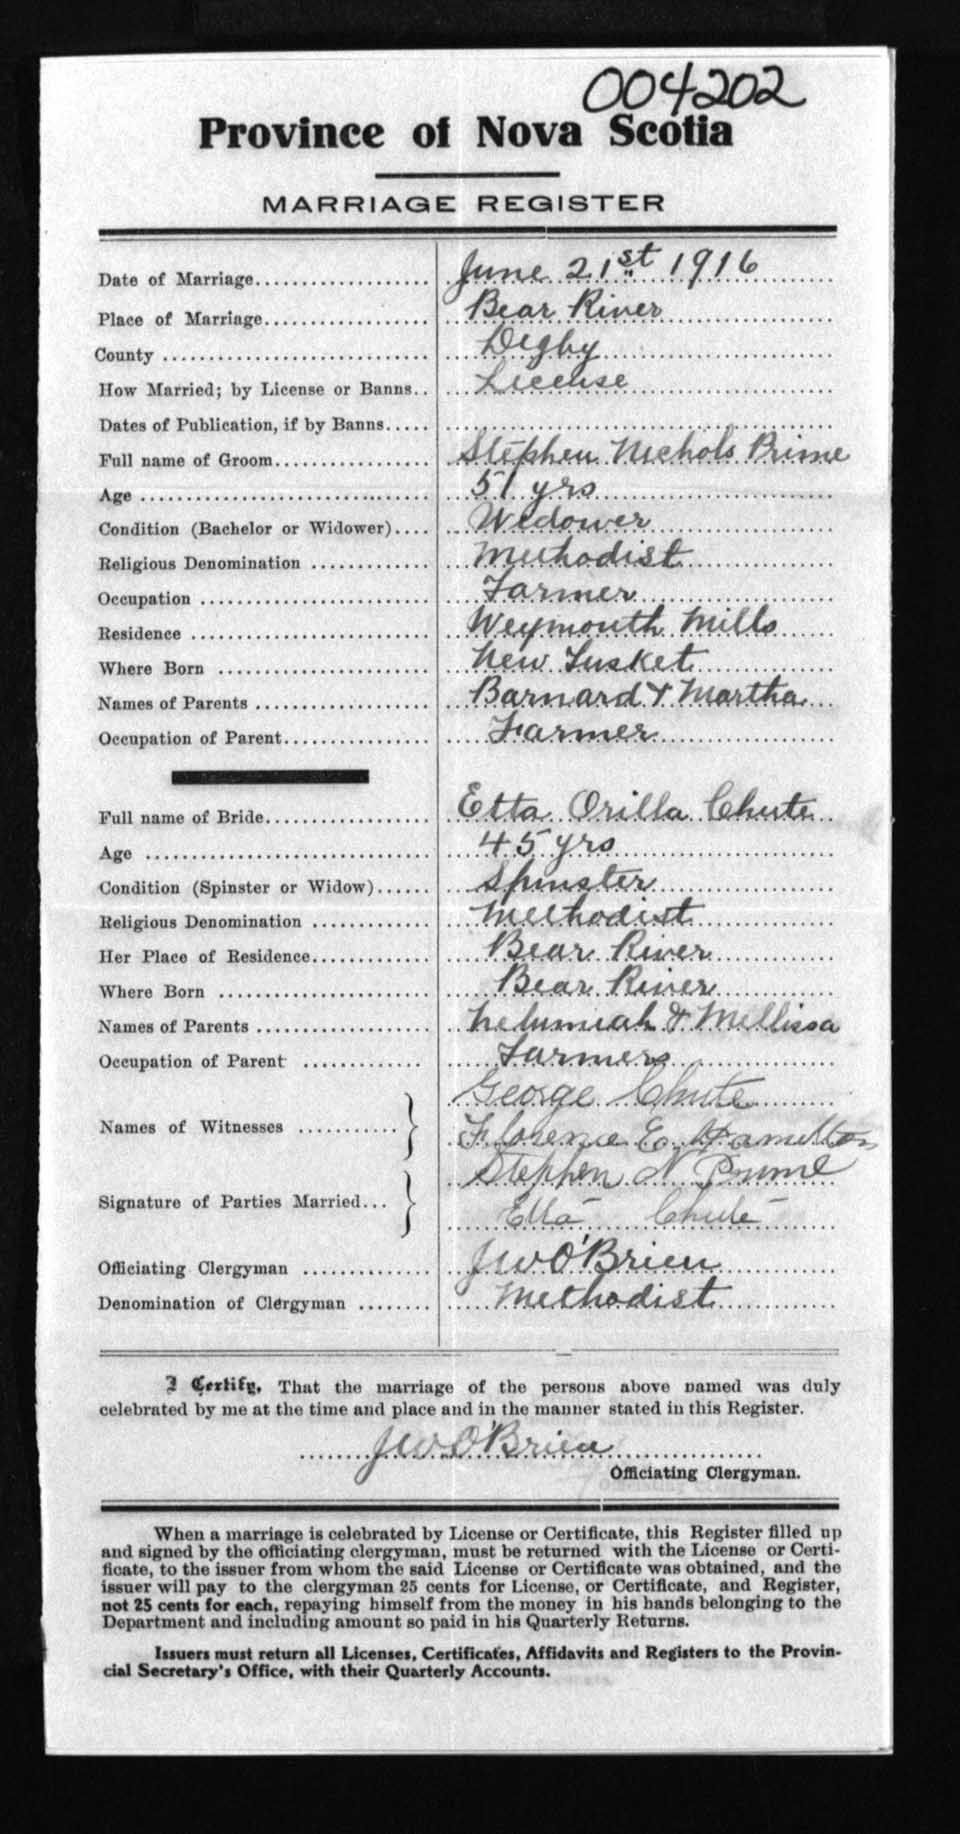 004202
Province of Nova Scotia
MARRIAGE REGISTER
Date of Marriage.................... June 21st 1916
Place of Marriage................... Bear River
County ............................. Digby
How Married; by License or Banns.. License
Dates of Publication, if by Banns.....
Full name of Groom.................. Stephen Nichols Prime
Age ................................ 51 yrs
Condition (Bachelor or Widower).... Widower
Religious Denomination ............. Methodist
Occupation ......................... Farmer
Residence .......................... Weymouth Mills
Where Born ......................... New Tusket
Names of Parents ................... Barnard & Martha
Occupation of Parent................ Farmer
Full name of Bride.................. Etta Orilla Chute
Age ................................ 45 yrs
Condition (Spinster or Widow)...... Spinster
Religious Denomination ............. Methodist
Her Place of Residence............. Bear River
Where Born ......................... Bear River
Names of Parents ................... Nehumiah & Mellissa
Occupation of Parent ............... Farmers
George Chute
Names of Witnesses ........... } Florence E. Hamilton
Stephen N Prime
Signature of Parties Married... } Etta Chute
Officiating Clergyman .............. J W O'Brien
Denomination of Clergyman ........ Methodist
I Certify, That the marriage of the persons above named was duly
celebrated by me at the time and place and in the manner stated in this Register.
J W O'Brien
Officiating Clergyman.
When a marriage is celebrated by License or Certificate, this Register filled up
and signed by the officiating clergyman, must be returned with the License or Certi-
ficate, to the issuer from whom the said License or Certificate was obtained, and the
issuer will pay to the clergyman 25 cents for License, or Certificate, and Register,
not 25 cents for each, repaying himself from the money in his hands belonging to the
Department and including amount so paid in his Quarterly Returns.
Issuers must return all Licenses, Certificates, Affidavits and Registers to the Provin-
cial Secretary's Office, with their Quarterly Accounts.